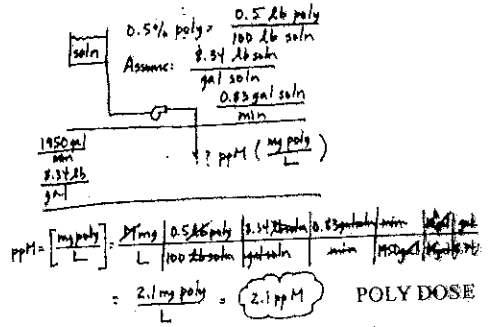 0.5% poly = 0.5 lb poly / 100 lb soln
soln
Assume: 8.34 lb soln / gal soln
0.83 gal soln / min
1950 gal / min
8.34 lb / gal
? ppM (mg poly / L)
ppM = [mg poly / L] = M mg / L | 0.5 lb poly / 100 lb soln | 8.34 lb soln / gal soln | 0.83 gal soln / min | min / 1950 gal | gal / 8.34
= 2.1 mg poly / L = 2.1 ppM
POLY DOSE